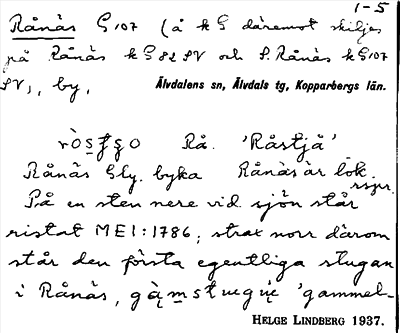 1-5
Rånäs G107 (å k G däremot skiljes
på Rånäs k G 82 SV och S. Rånäs k G107
SV), by.
Älvdalens sn, Älvdals tg, Kopparbergs län.
Rå. 'Råstjå'
Rånäs Gly. byka Rånäs är lok.
rspr.
På en sten nere vid sjön står
ristat MEI:1786; strax norr därom
står den första egentliga stugan
i Rånäs, 'gammel-
HELGE LINDBERG 1937.